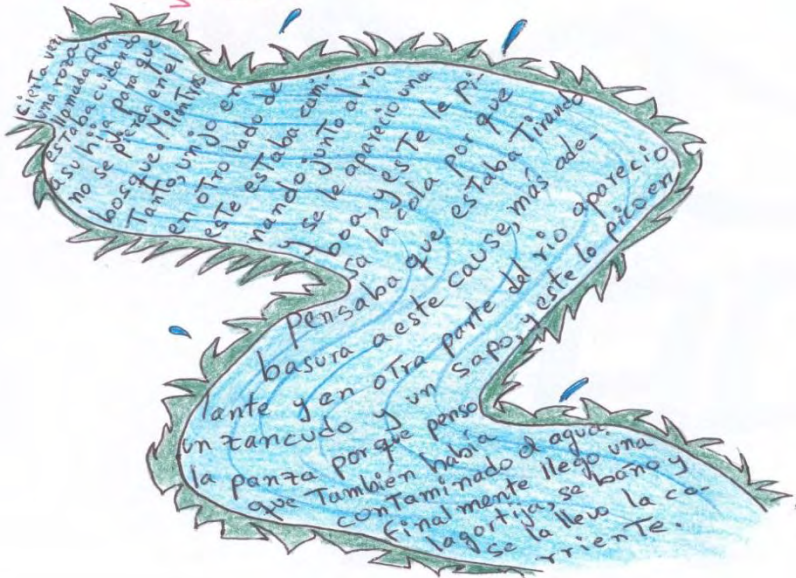 cierta vez
una roza
llamada flor
estaba cuidando
a su hija para que
no se pierda en el
bosque. Mientras
Tanto, un jo en
en otro lado de
este estaba cami-
nando junto al rio
y se le aparecio una
boa, y este le pi-
sa la cola por que
pensaba que estaba Tirando
basura a este cause, más ade-
lante y en otra parte del rio aparecio
un zancudo y un sapo, y este lo pico en
la panza porque penso
que Tambien había
contaminado el agua.
finalmente llego una
lagartija, se baño y
se la llevo la co-
rriente.